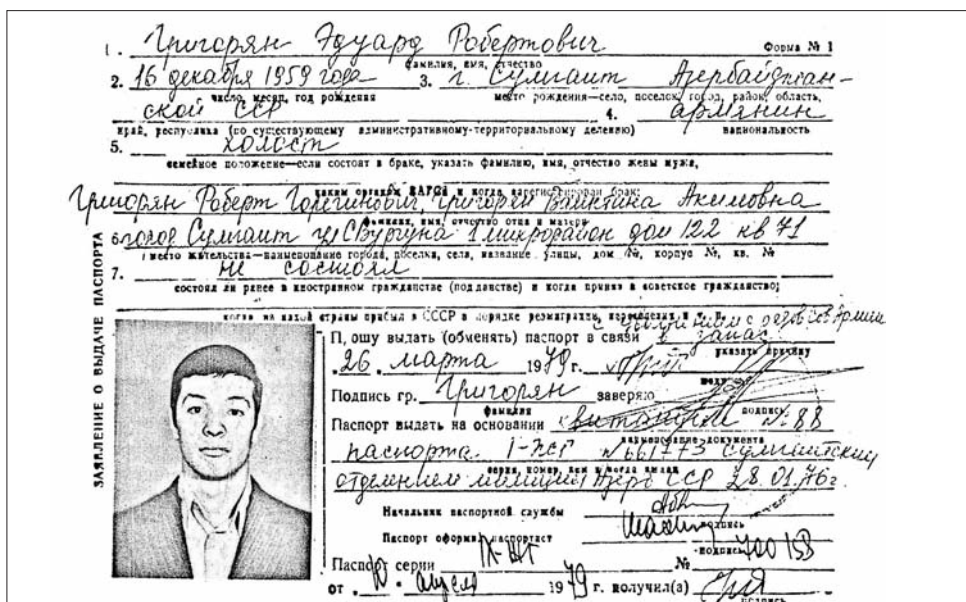 1. Григорян Эдуард Робертович Форма № 1
фамилия, имя, отчество
2. 16 декабря 1959 года 3. г. Сумгаит Азербайджан-
число, месяц, год рождения место рождения—село, поселок, город, район, область,
ской ССР 4. армянин
край, республика (по существующему административному-территориальному делению) национальность
5. холост
семейное положение—если состоит в браке, указать фамилию, имя, отчество жены мужа,
каким органом ЗАГСа и когда зарегистрирован брак;
Григорян Роберт Григорян Акимовна
фамилия, имя, отчество отца и матери
6. город Сумгаит ул С.Вургуна 1 микрорайон дом 122 кв 71
место жительства—наименование города, поселка, села, название улицы, дом №, корпус №, кв. №
7. не состоял
состоял ли ранее в иностранном гражданстве (подданстве) и когда принят в советское гражданство;
когда из какой страны прибыл в СССР в порядке репатриации, переселения и т. п.
с Армии
П, ошу выдать (обменять) паспорт в связи в запас
указать причину
„26„ марта 1979 г.
Подпись гр. Григорян заверяю
фамилия подпись
Паспорт выдать на основании № 88
наименование документа
паспорта № 661773 Сумгаитским
серия, номер, кем и когда выдан
отделением милиции Азерб ССР 28.01.76г.
Начальник паспортной службы
подпись
Паспорт оформил паспортист
подпись
Паспорт серии № 700158
от „10„ апреля 1979 г. получил(а)
подпись
ЗАЯВЛЕНИЕ О ВЫДАЧЕ ПАСПОРТА